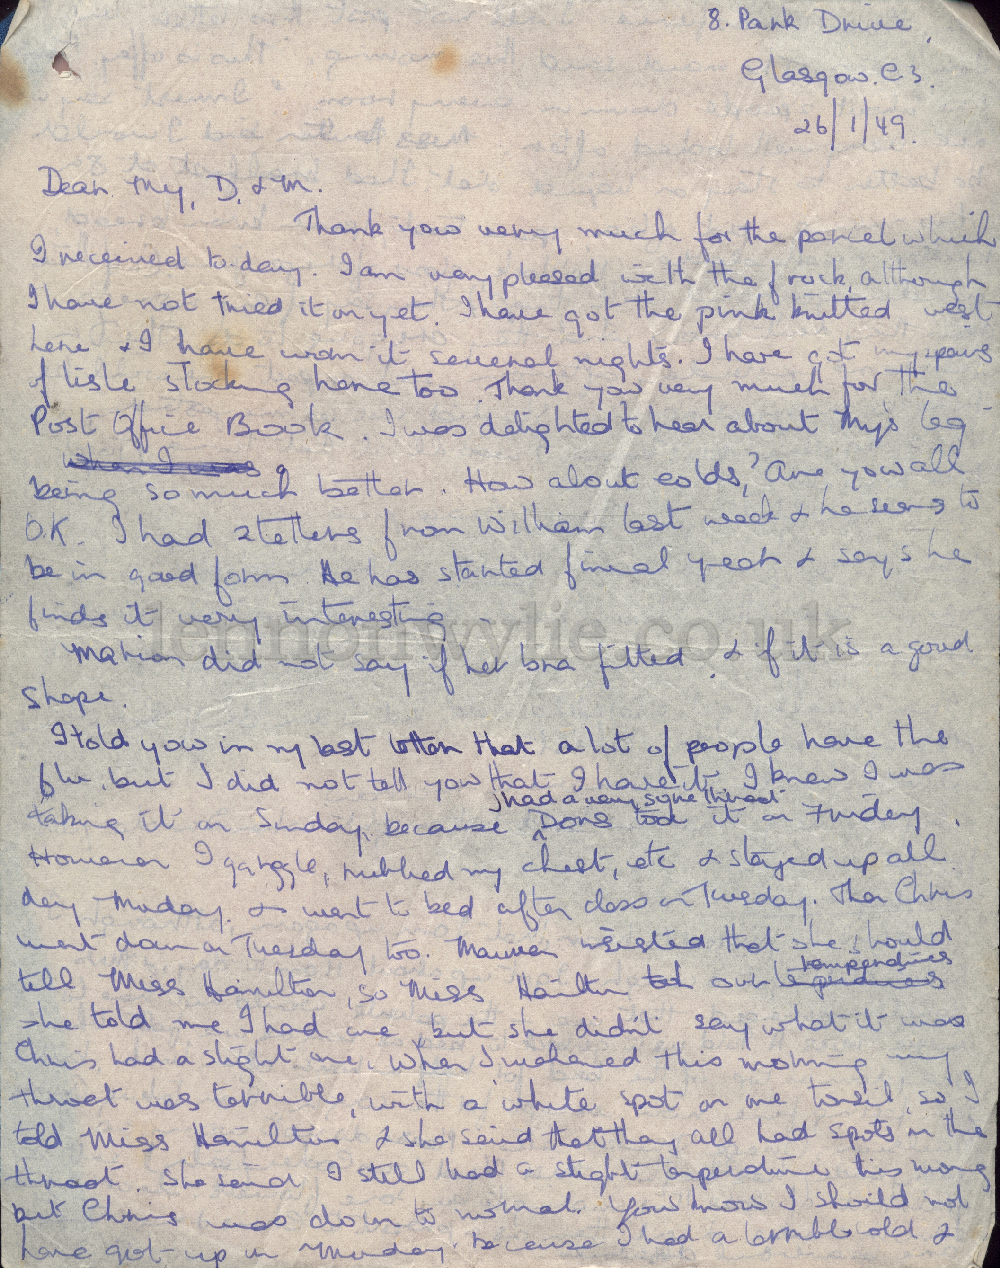 8. Park Drive,
Glasgow. C3.
26/1/49.
Dear My, D. & M.
Thank you very much for the parcel which
I received to-day. I am very pleased with the frock, although
I have not tried it on yet. I have got the pink knitted vest
here & I have worn it several nights. I have got my pairs
of lisle stocking here too. Thank you very much for the
Post Office Book. I was delighted to hear about My's leg
when I was
being so much better. How about colds? Are you all
O.K. I had 2 letters from William last week & he seems to
be in good form. He has started final year & says he
finds it very interesting.
lennonwylie.co.uk
Marion did not say if her bra fitted & if it is a good
shape.
I told you in my last letter that a lot of people have the
flu. but I did not tell you that I have it. I knew I was
I had a very sore throat
taking it on Sunday, because Doris took it on Friday.
However I gargle, rubbed my chest, etc & stayed up all
day Monday. & went to bed after class on Tuesday. Then Chris
went down on Tuesday too. Maureen insisted that she should
temperatures
tell Miss Hamilton, so Miss Hamilton took our
she told me I had one, but she didn't say what it was
Chris had a slight one. When I wakened this morning my
throat was terrible, with a white spot on one tonsil, so I
told Miss Hamilton & she said that they all had spots in the
throat. She said I still had a slight temperature this morning
but Chris was down to normal. You know I should not
have got up on Monday because I had a terrible cold &